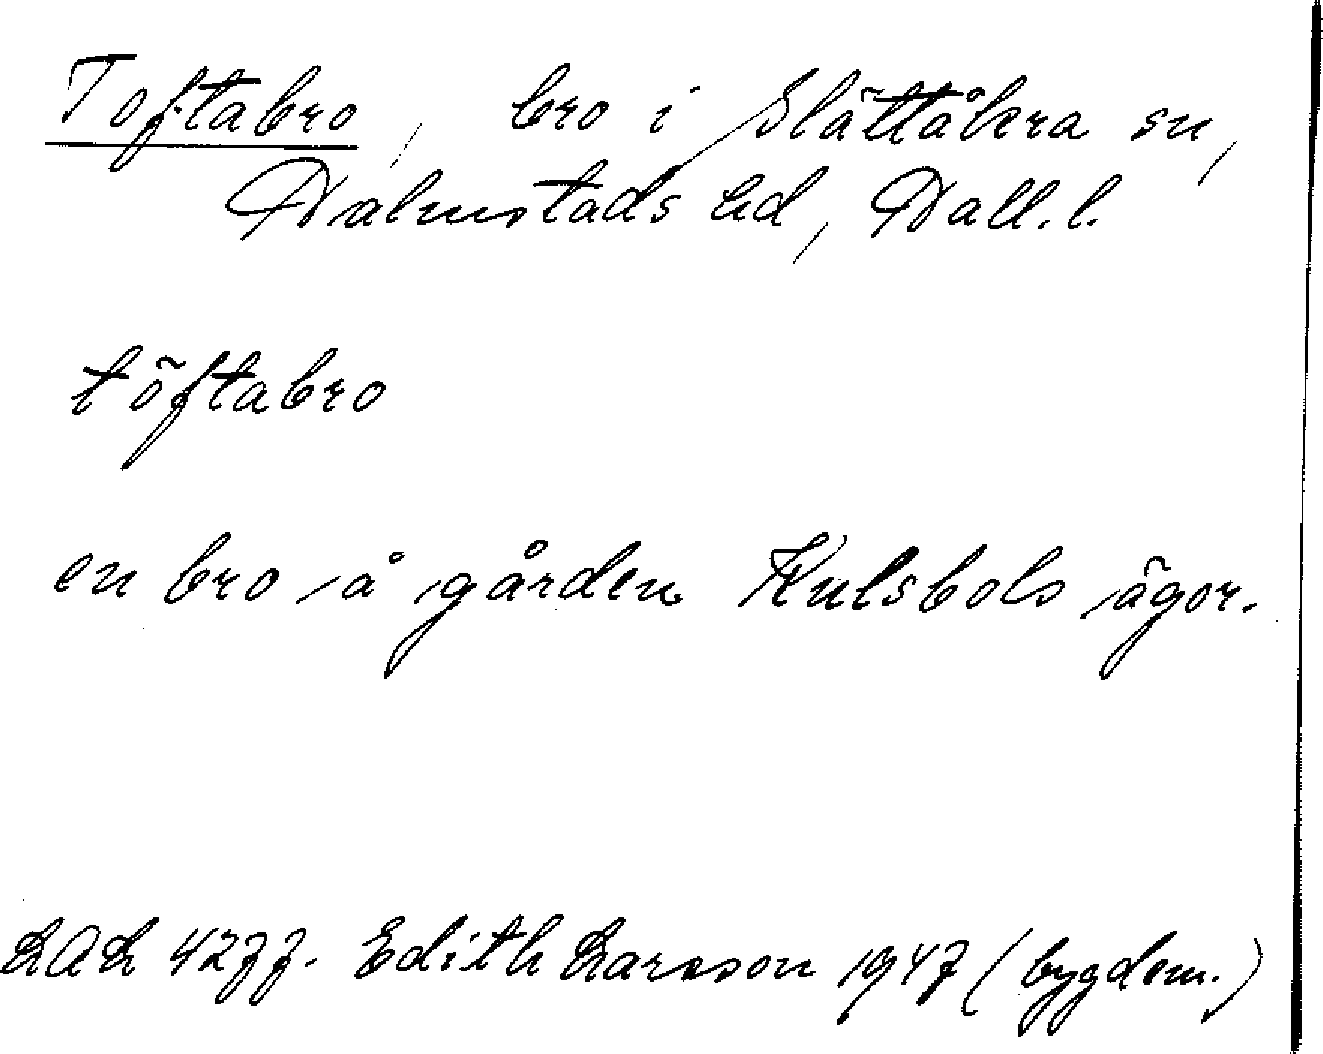 Toftabro, bro i Slättåkra sn,
Halmstads hd, Hall. l.
töftabro
en bro å gården Kulsbols ägor.
LAL 4277. Edith Larsson 1947 (bygdem.)